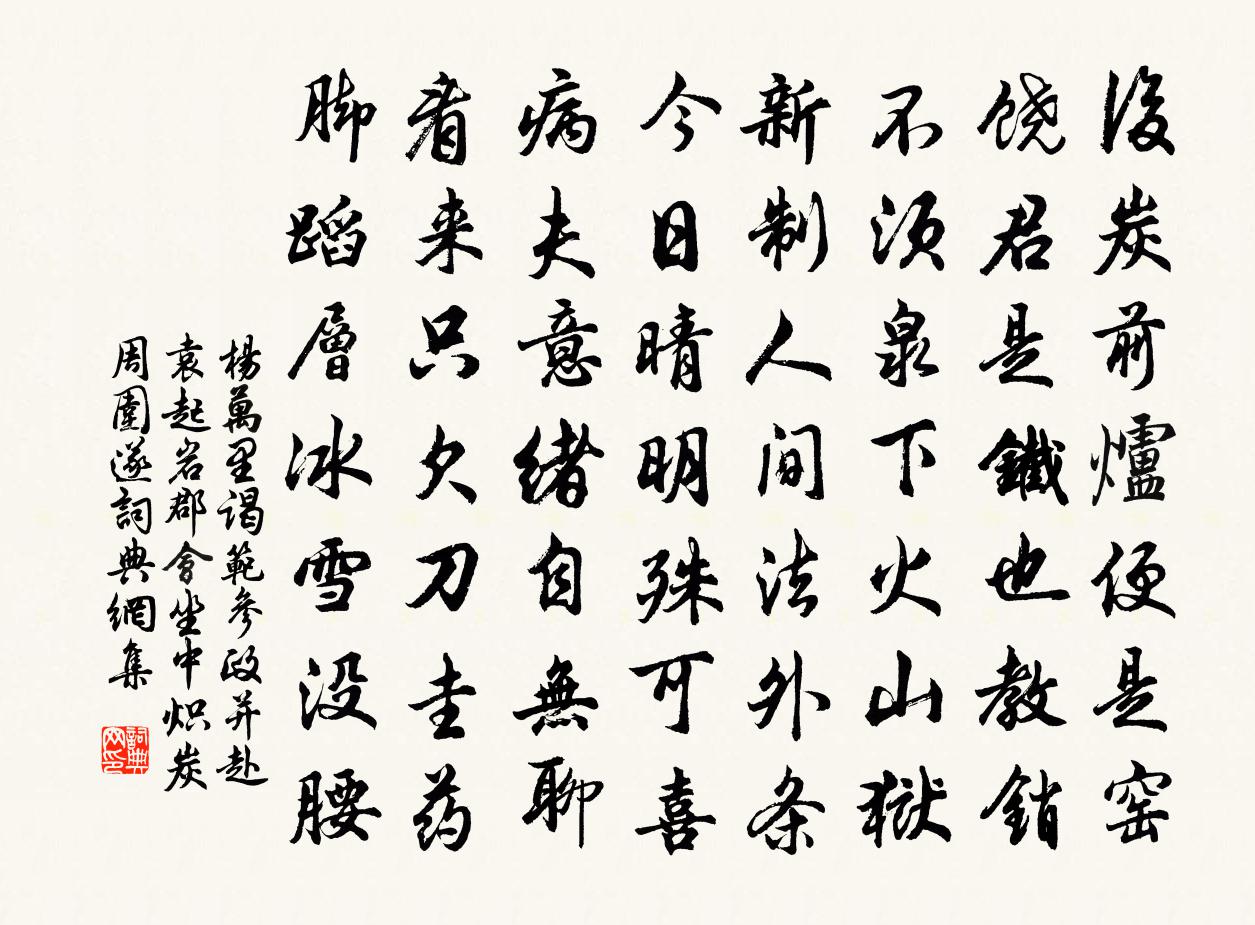 後炭前爐便是窑
饶君是鐵也教銷
不须泉下火山獄
新制人间法外条
今日晴明殊可喜
病夫意绪自無聊
看来只欠刀圭药
脚蹈層冰雪没腰
楊萬里谒範參政并赴
袁起岩郡會坐中炽炭
周圍遂詞典網集
詞典网印